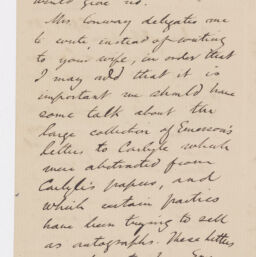 would give us.
Mrs Conway delegates me
to write, instead of writing
to your wife, in order that
I may add that it is
important we should have
some talk about the
large collection of Emerson's
letters to Carlyle which
were abstracted from
Carlyle's papers, and
which certain parties
have been trying to sell
as autographs. These letters